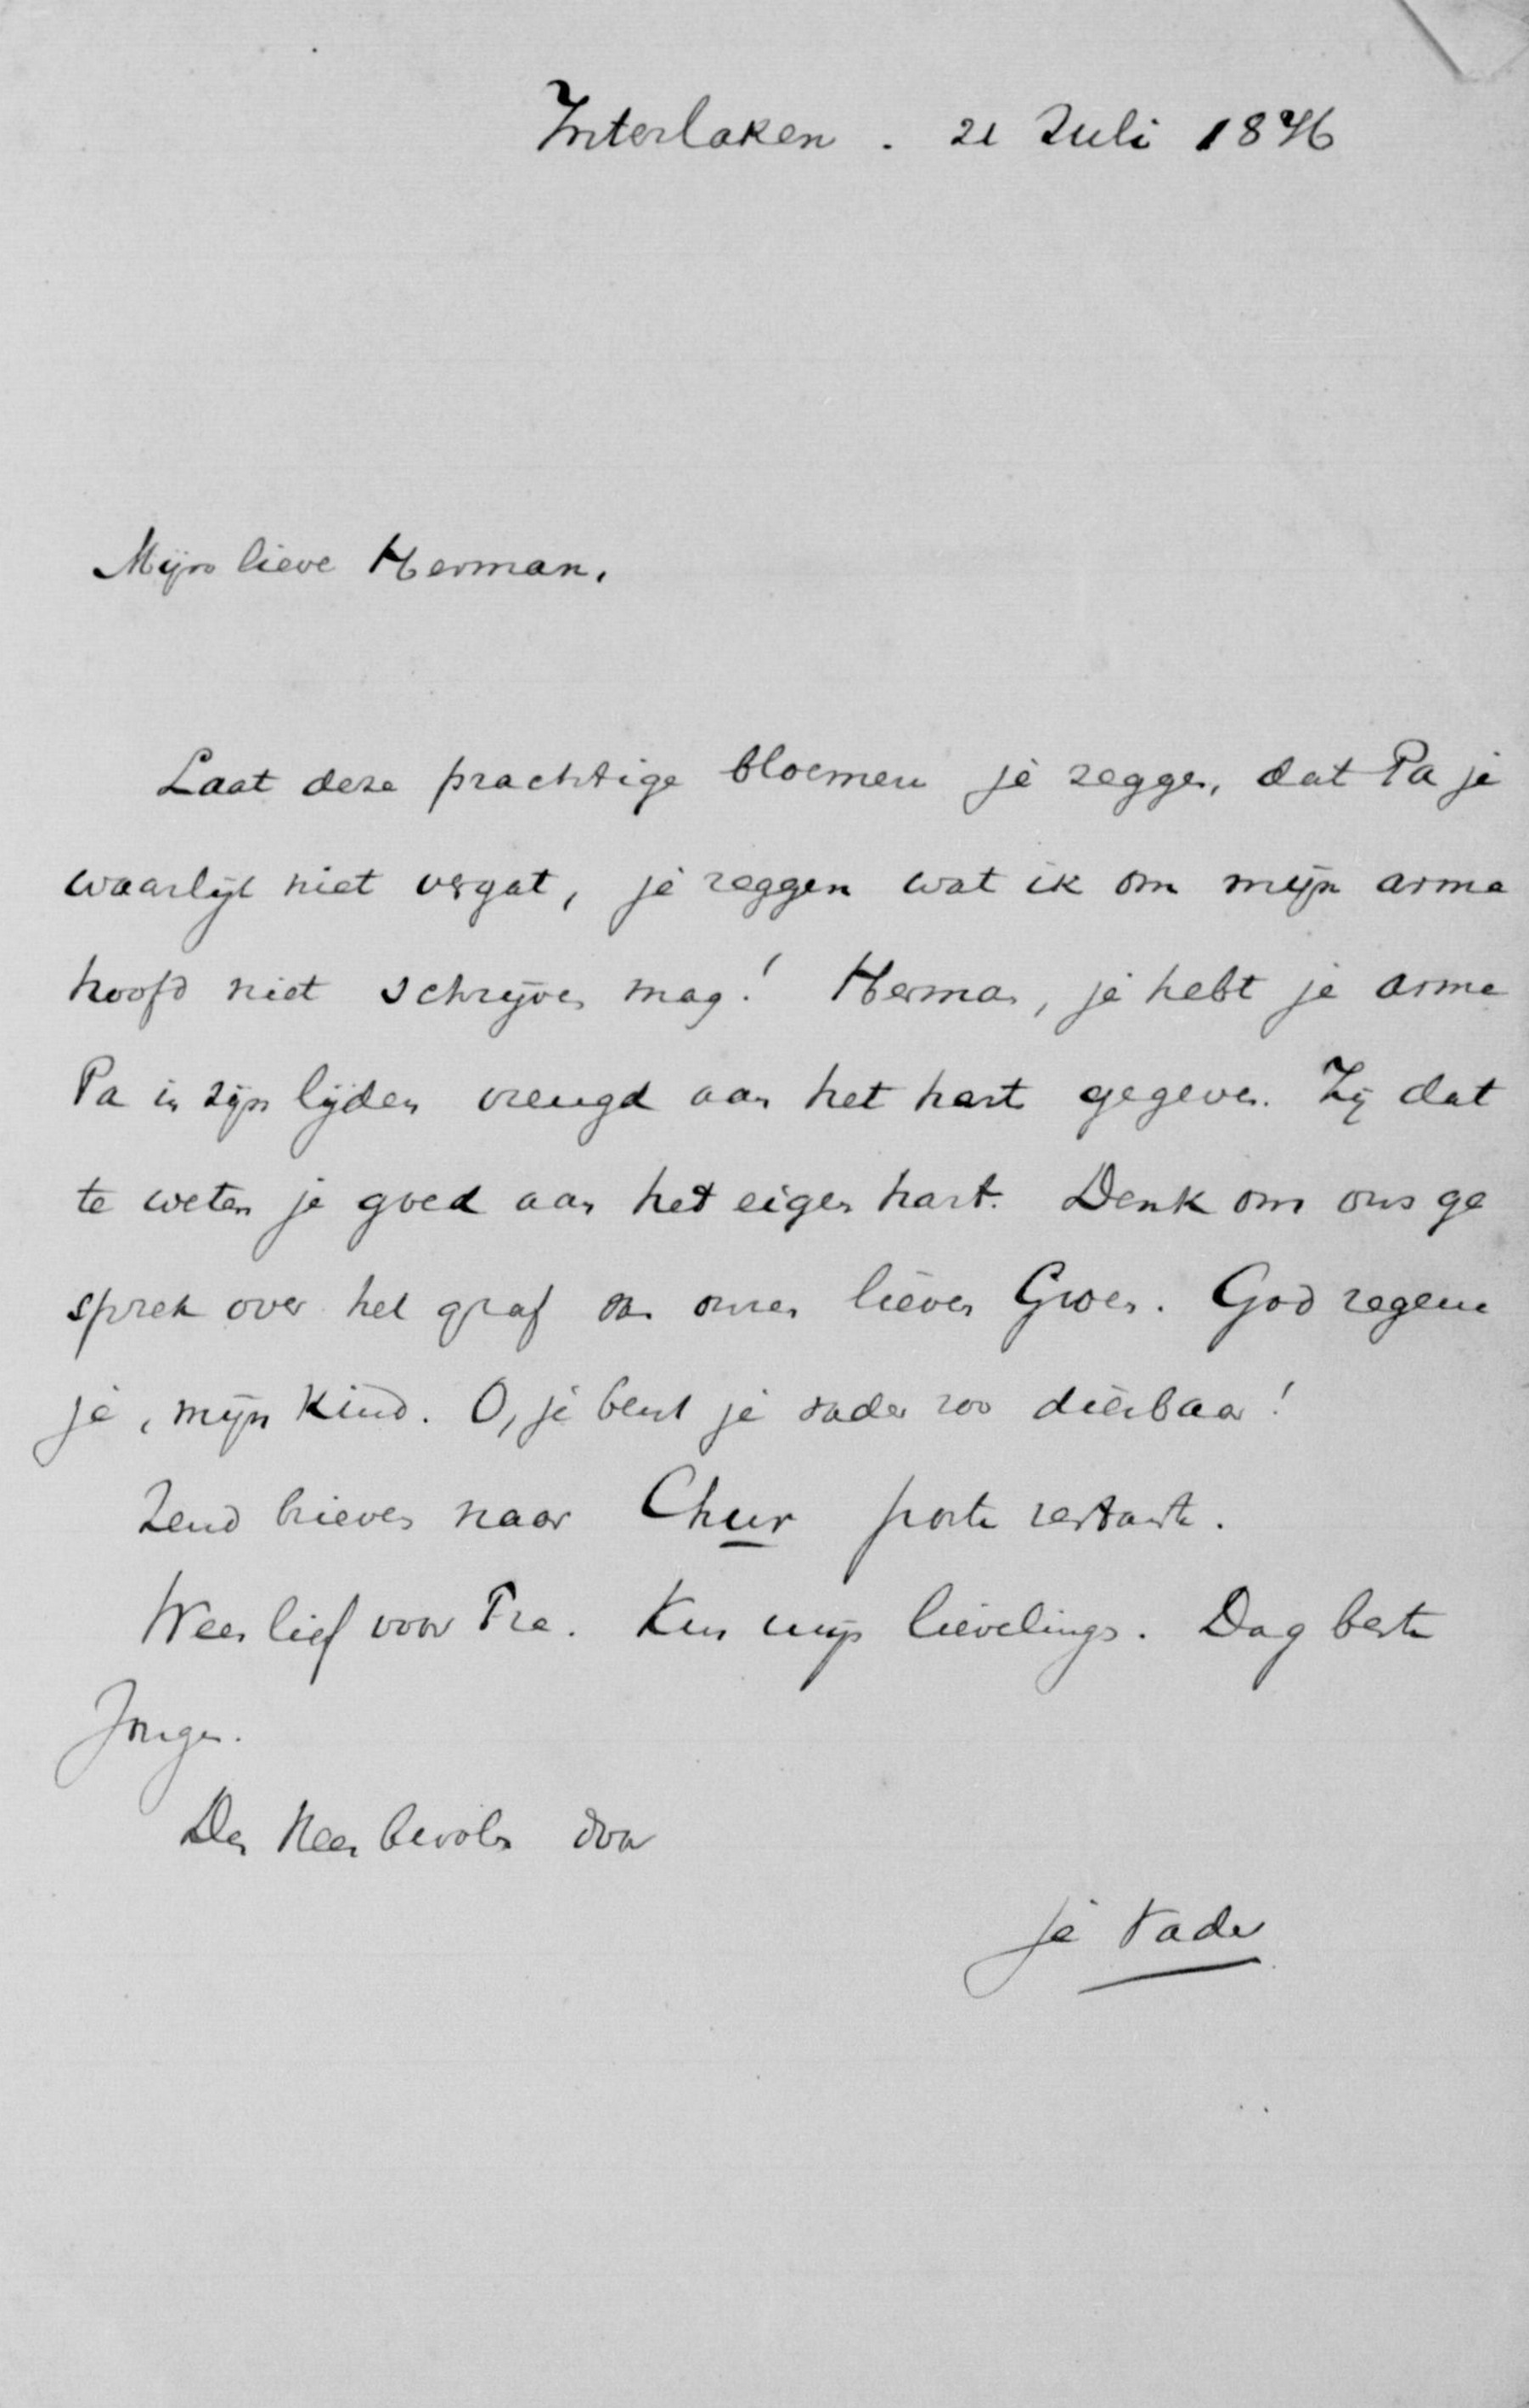 Interlaken. 21 Juli 1876
Mijn lieve Herman,
Laat deze prachtige bloemen je zeggen, dat Pa je
waarlijk niet vergat, je zeggen wat ik om mijn arme
hoofd niet schrijven mag! Herman, je hebt je arme
Pa in zijn lijden vreugd aan het hart gegeven. Zij dat
te weten je goed aan het eigen hart. Denk om ons ge
sprek over het graf van onzen lieven Groen. God zegene
je, mijn kind. O, je bent je vader zoo dierbaar!
Zend brieven naar Chur poste restante.
Wees lief voor Fre. Kus mijn lievelings. Dag beste
Jongen.
Den Heer bevolen door
je Vader